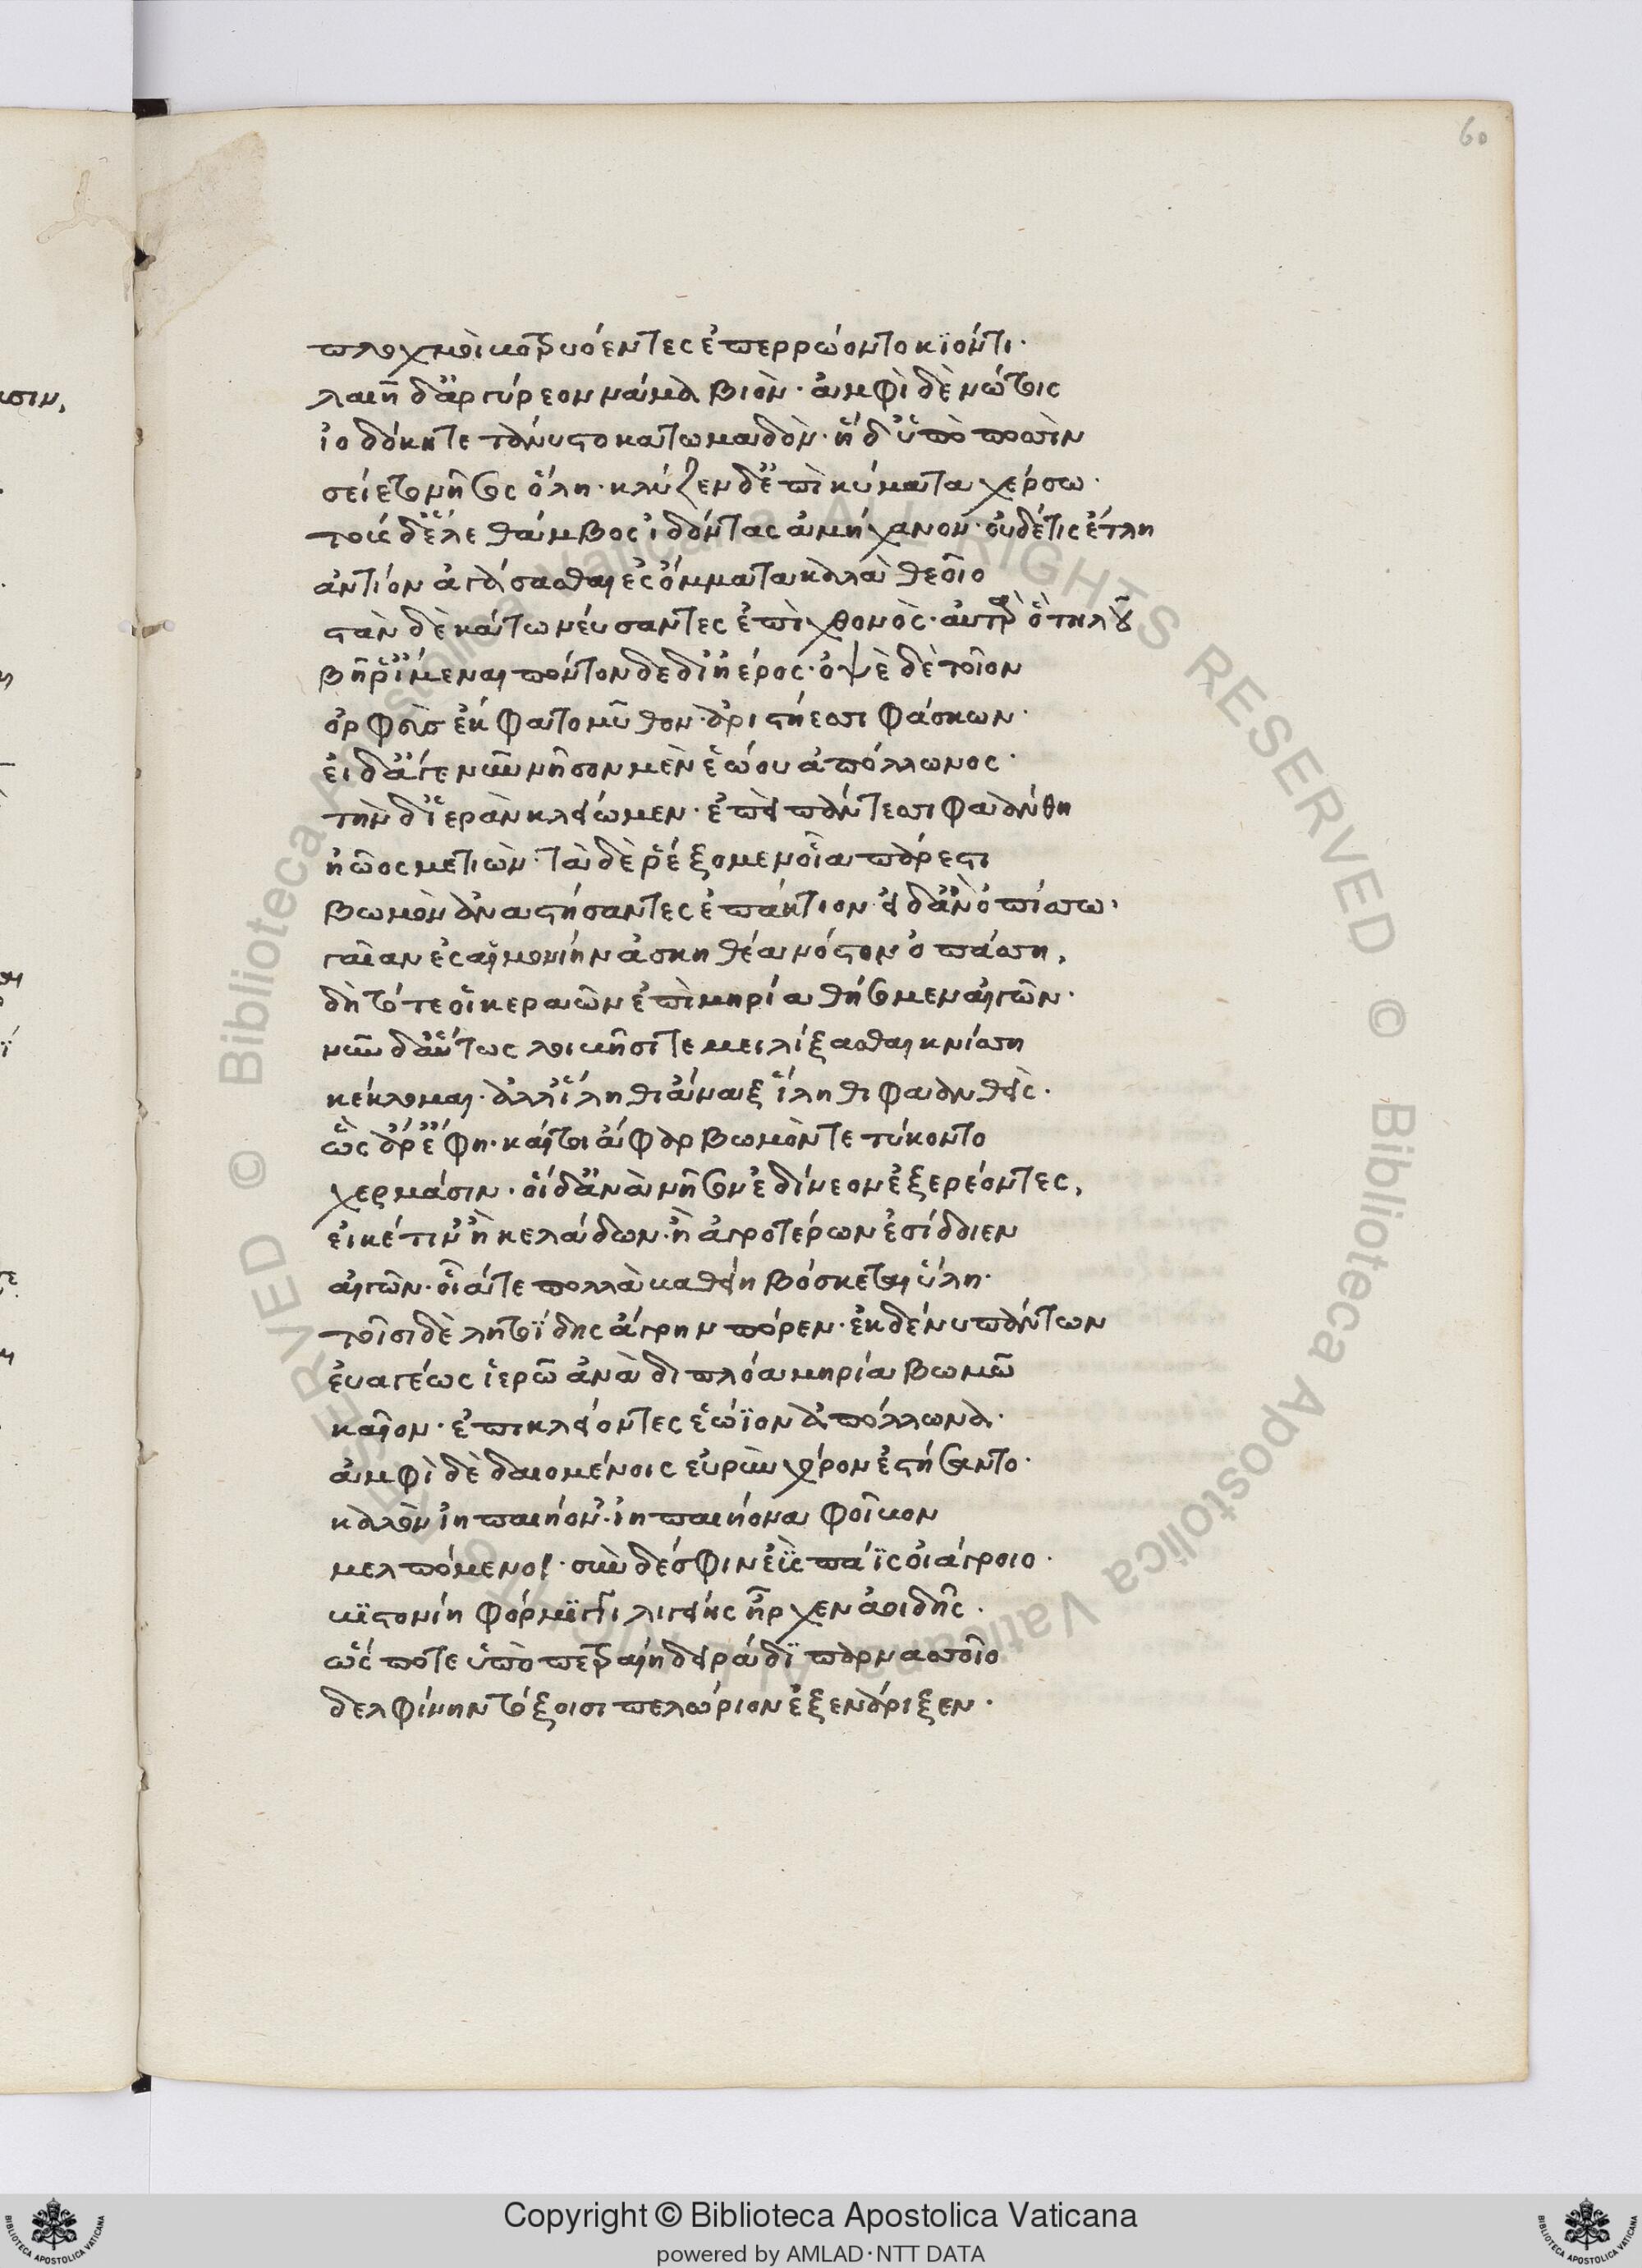 60
πλοχμοὶ βοτρυόεντες ἐπερρώοντο κϊόντι·
λαιῆ δ' ἀργύρεον νώμα βιὸν· ἀμφὶ δὲ νώτοις
ἰοδόκη τετάνυστο κατωμαδὸν· ἡ δ' ὑπὸ ποσσὶν
σείετο νῆσος ὅλη· κλύζεν δ' ἐπὶ κύματα χέρσω·
τοὺς δ' ἕλε θάμβος ἰδόντας ἀμήχανον· οὐδέ τις ἔτλη
ἀντίον ἀυγάσασθαι ἐς ὄμματα καλὰ θεοῖο
στὰν δὲ κάτω νεύσαντες ἐπὶ χθονὸς· αὐτὰρ ὁ τηλοῦ
βῆ ῥ' ἴμεναι πόντον δε δι' ἠέρος· ὀψὲ δὲ τοῖον
ὀρφεὺς ἔκφατο μῦθον ἀριστήεσσι φάσκων·
εἰ δ' ἄγε νῦν νῆσον μὲν ἑώου ἀπόλλωνος·
τὴν δ' ἱερὰν κλείωμεν· ἐπεὶ πάντεσσι φαάνθη
ἠῶος μετιὼν· τὰ δὲ ῥέξομεν οἷα πάρεστι
βωμὸν ἀναστήσαντες ἐπάκτιον· εἰ δ' ἂν ὀπίσσω·
γαῖαν ἐς αἱμονίην ἀσκηθέα νόστον ὀπάσση,
δὴ τότε οἱ κεραῶν ἐπὶ μηρία θήσομεν αἰγῶν·
νῦν δ' αὕτως λοιβῆσί τε μειλίξασθαι κνίσση
κέκλομαι· ἀλλ' ἵληθι ἄναξ ἵληθι φαανθεὶς·
ὣς ἄρ' ἔφη· καὶ τοὶ ἄφαρ βωμὸν τετύκοντο
χερμάσιν· οἱ δ' ἀνὰ νῆσον ἐδίνεον ἐξερέοντες,
εἴ κέ τιν' ἢ κελάδων· ἢ ἀγροτέρων ἐσίδοιεν
αἰγῶν· οἷά τε πολλὰ βαθείη βόσκεται ὕλη·
τοῖσι δὲ λητοΐδης ἄγρην πόρεν· ἐκ δέ νυ πάντων
εὐαγέως ἱερῶ ἀνὰ διπλόα μηρία βωμῶ
καῖον· ἐπικλείοντες ἑώϊον ἀπόλλωνα·
ἀμφὶ δὲ δαιομένοις εὐρὺν χόρον ἐστήσαντο·
καλὸν ἰη παιήον'· ἰη παιήονα φοῖβον
μελπόμενοι· σὺν δέ σφιν ἐῢς πάϊς οἰάγροιο·
βϊστονίη φόρμϊγγι λιγείης ἦρχεν ἀοιδῆς·
ὥς ποτε ὑπὸ πετραίη δειράδϊ παρνασσοῖο
δελφίνην τόξοισι πελώριον ἐξενάριξεν·
Copyright © Biblioteca Apostolica Vaticana
powered by AMLAD·NTT DATA